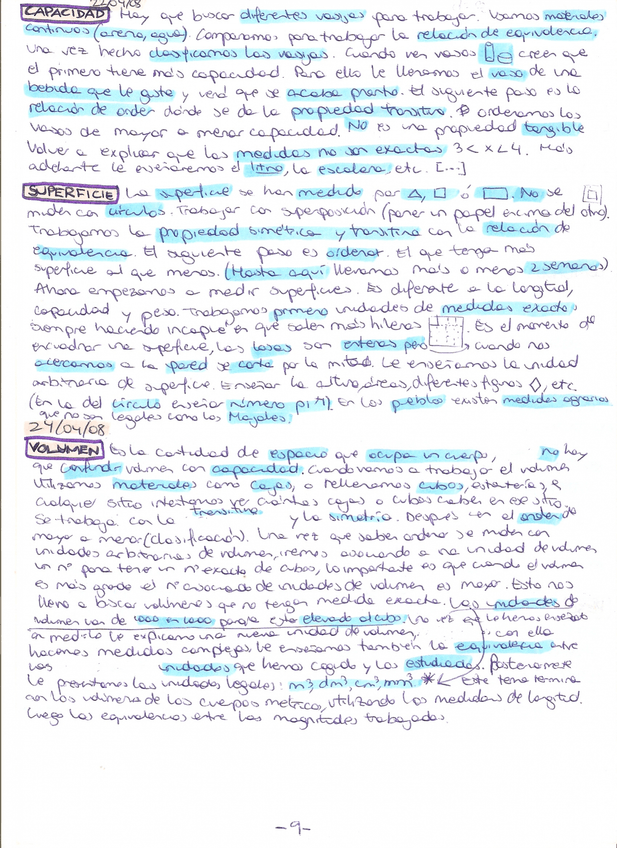 22/04/08
CAPACIDAD Hay que buscar diferentes vasijas para trabajar. Usamos materiales
continuos (arena, agua). Comparamos para trabajar la relación de equivalencia,
una vez hecho clasificamos las vasijas. Cuando ven vasos creen que
el primero tiene más capacidad. Para ello le llenamos el vaso de una
bebida que le guste y verá que se acaba pronto. El siguiente paso es la
relación de orden donde se da la propiedad transitiva. ordenamos los
vasos de mayor a menor capacidad. No es una propiedad tangible
Volver a explicar que las medidas no son exactas 3<x<4. Más
adelante le enseñaremos el litro, la escalera, etc. [...]
SUPERFICIE La superficie se han medido por △, □ ó ▭. No se
miden con círculos. Trabajar con superposición (poner un papel encima del otro).
Trabajamos la propiedad simétrica y transitiva con la relación de
equivalencia. El siguiente paso es ordenar. El que tenga más
superficie al que menos. (Hasta aquí llevamos más o menos 2 semanas)
Ahora empezamos a medir superficies. Es diferente a la longitud,
capacidad y peso. Trabajamos primero unidades de medidas exactas
siempre haciendo incapie en que salen más hileras. Es el momento de
encuadrar una superficie, las losas son enteras pero cuando nos
acercamos a la pared se corta por la mitad. Le enseñamos la unidad
arbitraria de superficie. Enseñar la altura, áreas, diferentes figuras ◇, etc.
(En la del círculo enseñar número pi π). En los pueblos existen medidas agrarias
que no son legales como los Majales.
24/04/08
VOLUMEN Es la cantidad de espacio que ocupa un cuerpo, no hay
que confundir volumen con capacidad. Cuando vamos a trabajar el volumen
utilizamos materiales como cajas, o rellenamos cubos, estanterías,
cualquier sitio intentamos ver cuántas cajas o cubos caben en ese sitio.
Se trabaja con la transitiva y la simetría. Después en el orden de
mayor a menor (clasificación). Una vez que saben ordenar se miden con
unidades arbitrarias de volumen, iremos asociando a una unidad de volumen
un nº para tener un nº exacto de cubos, lo importante es que cuando el volumen
es más grande el nº asociado de unidades de volumen es mayor. Esto nos
lleva a buscar volúmenes que no tengan medida exacta. Las unidades de
volumen van de 1000 en 1000 porque esta elevado al cubo. Una vez que le hemos enseñado
a medirlo le explicamos una nueva unidad de volumen, con ella
hacemos medidas complejas, le enseñamos también la equivalencia entre
las unidades que hemos cogido y las estudiadas. Posteriormente
le presentamos las unidades legales: m³, dm³, cm³, mm³ * Este tema termina
con los volúmenes de los cuerpos métricos, utilizando las medidas de longitud.
Luego las equivalencias entre las magnitudes trabajadas.
-9-